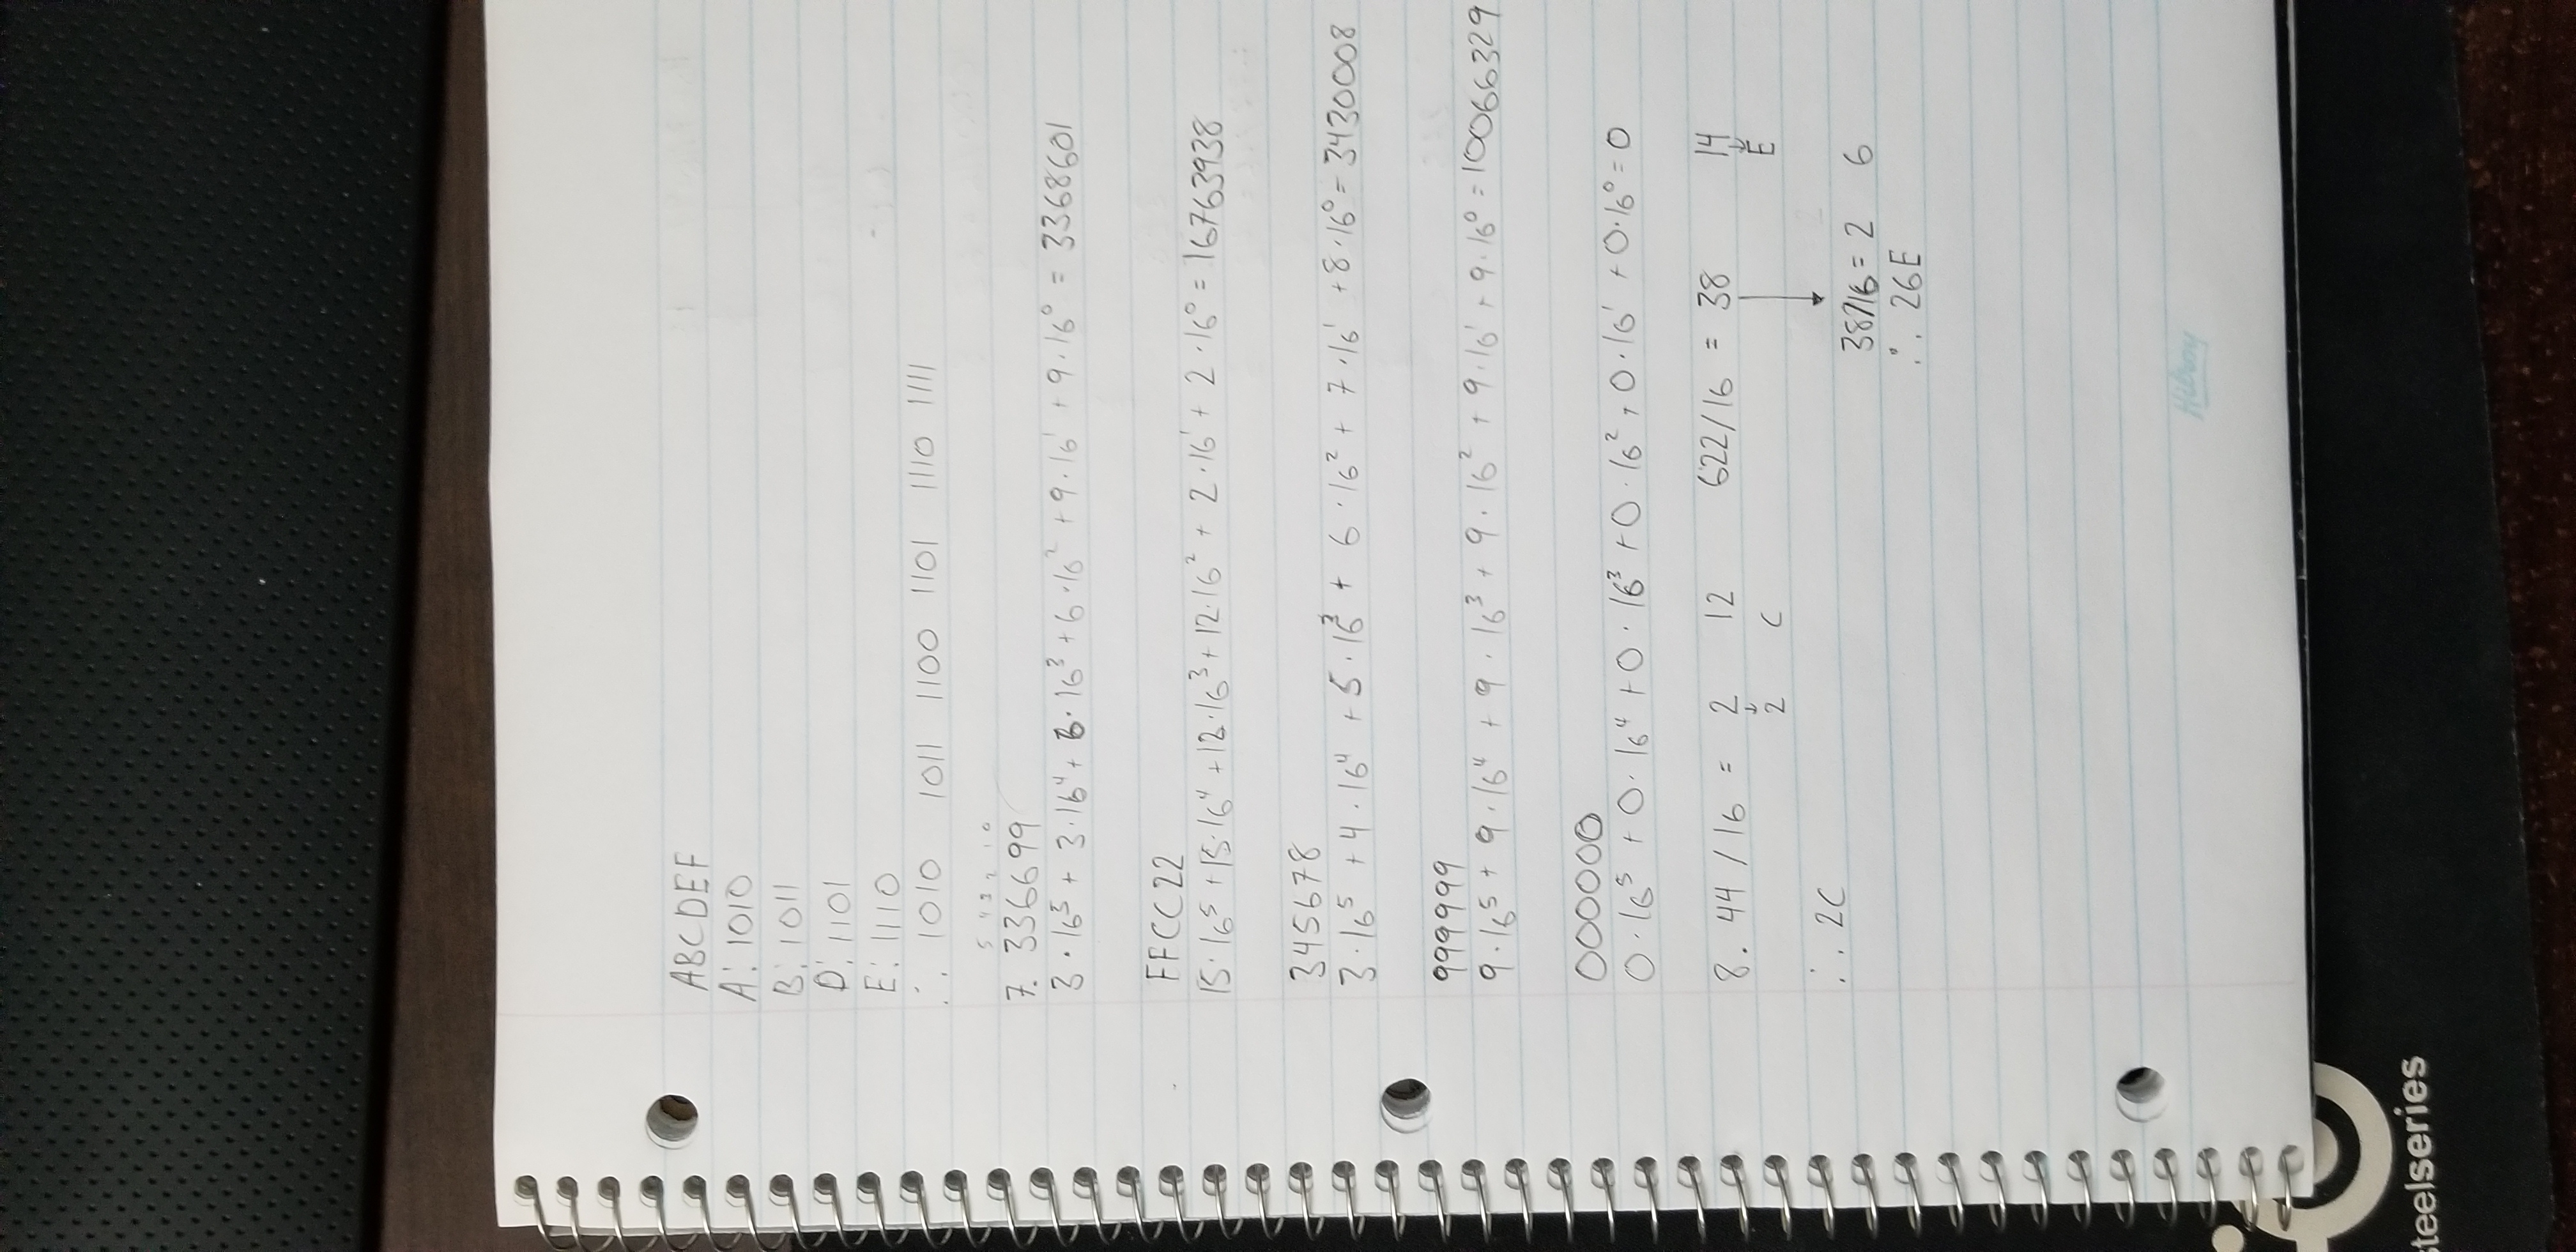 ABCDEF
A: 1010
B: 1011
D: 1101
E: 1110
∴ 1010 1011 1100 1101 1110 1111
5 4 3 2 1 0
7. 336699
3·16⁵ + 3·16⁴ + 6·16³ + 6·16² + 9·16¹ + 9·16⁰ = 3368601
FFCC22
15·16⁵ + 15·16⁴ + 12·16³ + 12·16² + 2·16¹ + 2·16⁰ = 16763938
345678
3·16⁵ + 4·16⁴ + 5·16³ + 6·16² + 7·16¹ + 8·16⁰ = 3430008
999999
9·16⁵ + 9·16⁴ + 9·16³ + 9·16² + 9·16¹ + 9·16⁰ = 10066329
000000
0·16⁵ + 0·16⁴ + 0·16³ + 0·16² + 0·16¹ + 0·16⁰ = 0
8. 44 / 16 = 2 12
↓
2 C
∴ 2C
622/16 = 38 14
↓
E
↓
38/16 = 2 6
∴ 26E
Hilroy
steelseries